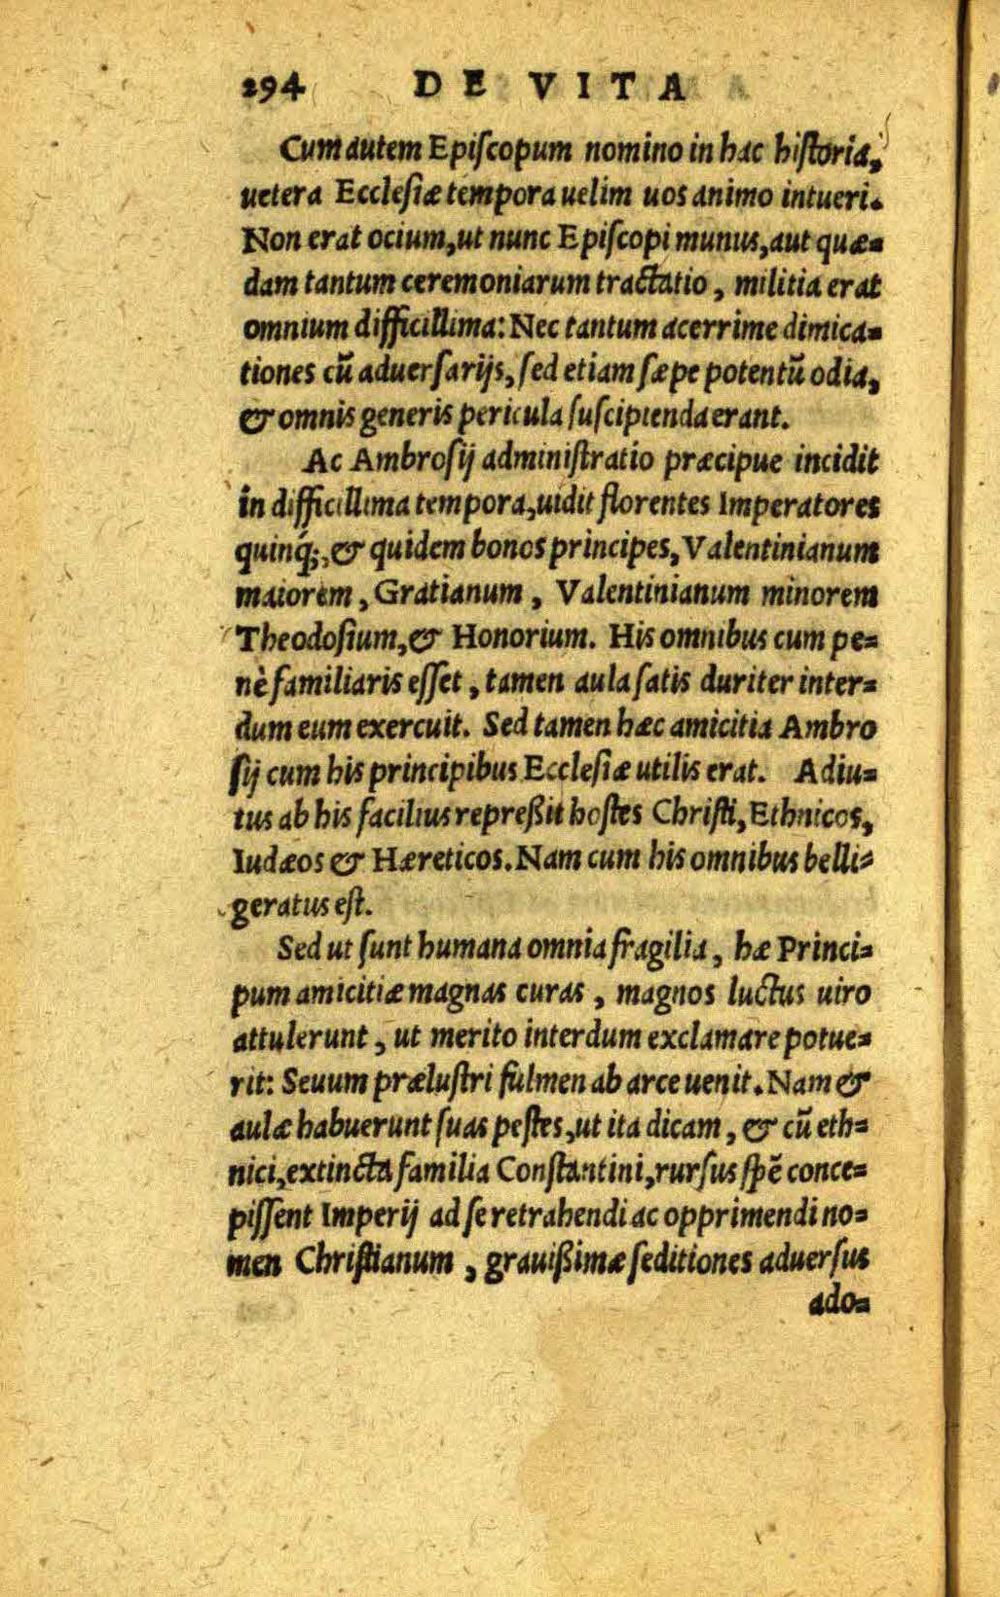 294 DE VITA
Cum autem Epiſcopum nomino in hac hiſtoria,
uetera Eccleſiæ tempora uelim uos animo intueri.
Non erat ocium, ut nunc Epiſcopi munus, aut quæ=
dam tantum ceremoniarum tractatio, militia erat
omnium difficillima: Nec tantum acerrime dimica=
tiones cū aduerſarijs, ſed etiam ſæpe potentū odia,
& omnis generis pericula ſuſcipienda erant.
Ac Ambroſij adminiſtratio præcipue incidit
in difficillima tempora, uidit florentes Imperatores
quinq́;, & quidem bonos principes, Valentinianum
maiorem, Gratianum, Valentinianum minorem
Theodoſium, & Honorium. His omnibus cum pe=
nè familiaris eſſet, tamen aula ſatis duriter inter=
dum eum exercuit. Sed tamen hæc amicitia Ambro
ſij cum his principibus Eccleſiæ utilis erat. Adiu=
tus ab his facilius repreßit hoſtes Chriſti, Ethnicos,
Iudæos & Hæreticos. Nam cum his omnibus belli=
geratus eſt.
Sed ut ſunt humana omnia fragilia, hæ Princi=
pum amicitiæ magnas curas, magnos luctus uiro
attulerunt, ut merito interdum exclamare potue=
rit: Seuum præluſtri fulmen ab arce uenit. Nam &
aulæ habuerunt ſuas peſtes, ut ita dicam, & cū eth=
nici, extincta familia Conſtantini, rurſus ſpē conce=
piſſent Imperij ad ſe retrahendi ac opprimendi no=
men Chriſtianum, grauißimæ ſeditiones aduerſus
ado=